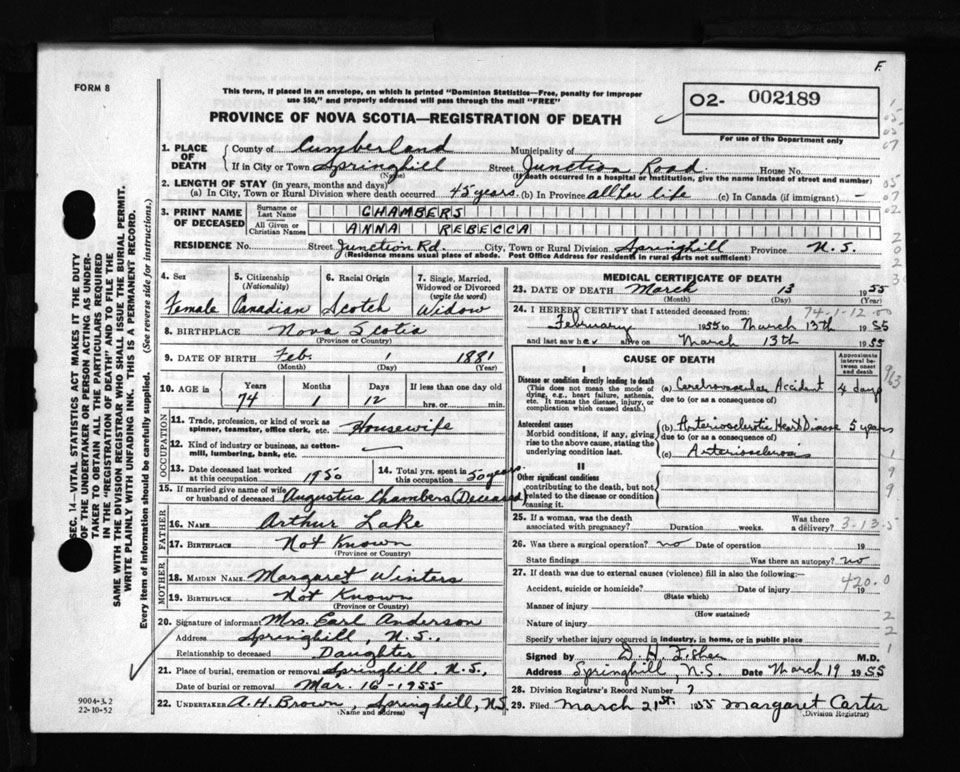 F.
FORM 8
This form, if placed in an envelope, on which is printed "Dominion Statistics—Free, penalty for improper
use $50," and properly addressed will pass through the mail "FREE"
PROVINCE OF NOVA SCOTIA—REGISTRATION OF DEATH
02- 002189
For use of the Department only
1. PLACE OF DEATH { County of Cumberland Municipality of
If in City or Town Springhill Street Junction Road House No.
(Name) (If death occurred in a hospital or institution, give the name instead of street and number)
2. LENGTH OF STAY (in years, months and days)
(a) In City, Town or Rural Division where death occurred 45 years. (b) In Province all her life (c) In Canada (if immigrant) -
3. PRINT NAME OF DECEASED { Surname or Last Name CHAMBERS
All Given or Christian Names ANNA REBECCA
RESIDENCE No. Street Junction Rd. City, Town or Rural Division Springhill Province N.S.
(Residence means usual place of abode. Post Office Address for residents in rural parts not sufficient)
4. Sex Female
5. Citizenship (Nationality) Canadian
6. Racial Origin Scotch
7. Single, Married, Widowed or Divorced (write the word) Widow
8. BIRTHPLACE Nova Scotia
(Province or Country)
9. DATE OF BIRTH Feb. 1 1881
(Month) (Day) (Year)
10. AGE in { Years 74 Months 1 Days 12 If less than one day old hrs. or min.
OCCUPATION
11. Trade, profession, or kind of work as spinner, teamster, office clerk, etc. Housewife
12. Kind of industry or business, as cotton-mill, lumbering, bank, etc.
13. Date deceased last worked at this occupation 1950
14. Total yrs. spent in this occupation 50 years
15. If married give name of wife or husband of deceased Augustus Chambers (Deceased)
FATHER
16. NAME Arthur Lake
17. BIRTHPLACE Not Known
(Province or Country)
MOTHER
18. MAIDEN NAME Margaret Winters
19. BIRTHPLACE Not Known
(Province or Country)
20. Signature of informant Mrs. Earl Anderson
Address Springhill, N.S.,
Relationship to deceased Daughter
21. Place of burial, cremation or removal Springhill, N.S.,
Date of burial or removal Mar. 16-1955
22. UNDERTAKER A. H. Brown, Springhill, N.S.
(Name and Address)
MEDICAL CERTIFICATE OF DEATH
23. DATE OF DEATH March 13 1955
(Month) (Day) (Year)
74-1-12
24. I HEREBY CERTIFY that I attended deceased from:
February 1955 to March 13th 1955
and last saw her alive on March 13th 1955
CAUSE OF DEATH
Approximate interval between onset and death
I
Disease or condition directly leading to death
(This does not mean the mode of dying, e.g., heart failure, asthenia, etc. It means the disease, injury, or complication which caused death.)
(a) Cerebrovascular Accident 4 days
due to (or as a consequence of)
Antecedent causes
Morbid conditions, if any, giving rise to the above cause, stating the underlying condition last.
(b) Arteriosclerotic Heart Disease 5 years
due to (or as a consequence of)
(c) Arteriosclerosis
II
Other significant conditions
contributing to the death, but not related to the disease or condition causing it.
25. If a woman, was the death associated with pregnancy? Duration weeks. Was there a delivery?
3-13-5
26. Was there a surgical operation? no Date of operation 19
State findings Was there an autopsy? no
27. If death was due to external causes (violence) fill in also the following:—
420.0
Accident, suicide or homicide? Date of injury 19
(State which)
Manner of injury
(How sustained)
Nature of injury
Specify whether injury occurred in industry, in home, or in public place
Signed by D. H. Fisher M.D.
Address Springhill, N.S. Date March 19 1955
28. Division Registrar's Record Number 7
29. Filed March 21st. 1955 Margaret Carter
(Division Registrar)
SEC. 14—VITAL STATISTICS ACT MAKES IT THE DUTY
OF THE UNDERTAKER OR PERSON ACTING AS UNDER-
TAKER TO OBTAIN ALL THE PARTICULARS REQUIRED
IN THE "REGISTRATION OF DEATH" AND TO FILE THE
SAME WITH THE DIVISION REGISTRAR WHO SHALL ISSUE THE BURIAL PERMIT.
WRITE PLAINLY WITH UNFADING INK. THIS IS A PERMANENT RECORD.
Every item of information should be carefully supplied. (See reverse side for instructions.)
9004-3.2
22-10-52